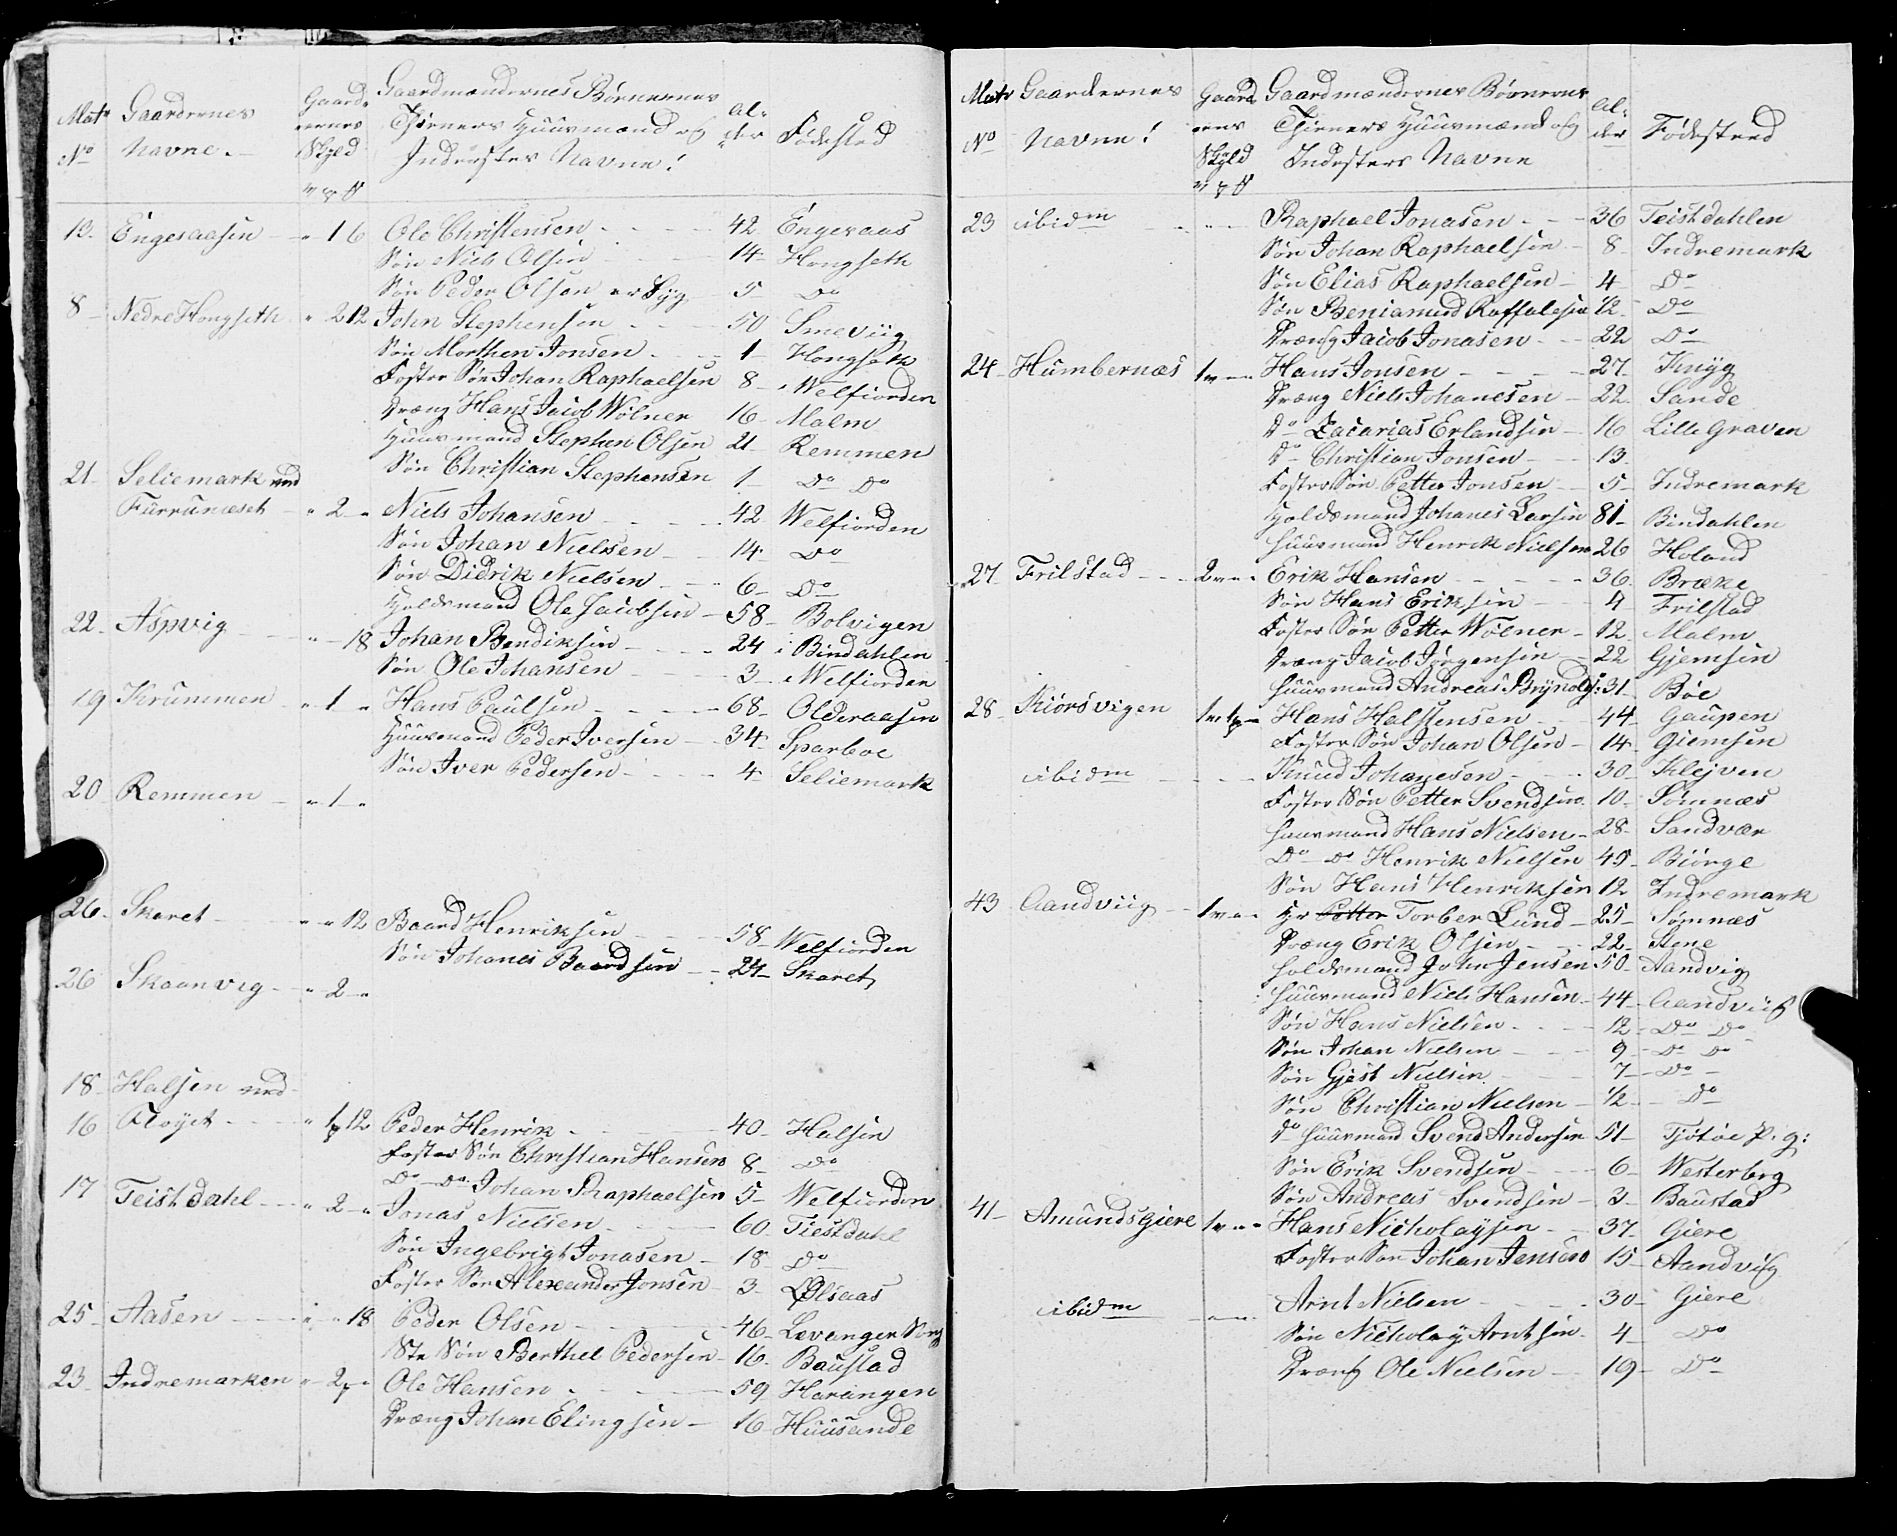 Matr Gaardernes Gaard- Gaardmændernes Børnenes Al-
No Navne. ernes Skyld Thieners Huusmænd og der Fødested
Inderster Navne!
13 Engesaasen 16 Ole Christensen 42 Engesaas
Søn Niels Olsen 14 Hongseth
Søn Peder Olsen er Syg 5 Do
8 Nedre Hongseth 2 12 John Stephensen 50 Smeviig
Søn Morthen Jonsen 1 Hongseth
Foster Søn Johan Raphaelsen 8 i Welfiorden
Dræng Hans Jacob Wølner 16 Malm
Huusmand Stephen Olsen 21 Remmen
Søn Christian Stephensen 1 Do Do
21 Seliemark med
Furrunæset 2 Niels Johansen 42 Welfiorden
Søn Johan Nielsen 14 Do
Søn Didrik Nielsen 6 Do
Holdsmand Ole Jacobsen 58 Bolvigen
22 Aspvig 18 Johan Bendiksen 24 i Bindahlen
Søn Ole Johansen 3 i Welfiorden
19 Krummen 1 Hans Paulsen 68 Olderaasen
Huusmand Peder Iversen 34 Sparboe
Søn Iver Pedersen 4 Seliemark
20 Remmen 1
26 Skaret 12 Baard Henriksen 58 Welfiorden
Søn Johanes Baardsen 24 Skaret
26 Skaanvig 2
18 Halsen med
16 Fløyet 1 12 Peder Henrik 40 Halsen
Foster Søn Christian Hansen 8 Do
Do Do Johan Raphaelsen 5 Welfiorden
17 Teistdahl 2 Jonas Nielsen 60 Tiestdahl
Søn Ingebrigt Jonasen 18 Do
Foster Søn Alexander Jonsen 3 Olsaas
25 Aasen 18 Peder Olsen 46 Levanger Sogn
Ste Søn Berthel Pedersen 16 Baustad
23 Indremarken 2 Ole Hansen 59 Harangen
Dræng Johan Elingsen 16 Huusande
Matr Gaardernes Gaard Gaardmændernes Børnenes Al-
No Navne! ernes Skyld Thieners Huusmænd og der Fødested
Indersters Navne
23 ibidm Raphael Jonasen 36 Teistdahlen
Søn Johan Raphaelsen 8 Indremark
Søn Elias Raphaelsen 4 Do
Søn Beniamud Raffalesen 1/2 Do
Dræng Jacob Jonasen 22 Do
24 Humbernæs 1 Hans Jonsen 27 Knyg
Dræng Niels Johanesen 22 Sande
Do Zacarias Erlandsen 16 Lille Graven
Do Christian Jonsen 13
Foster Søn Petter Jonsen 5 Indremark
Holdsmand Johanes Larsen 81 Bindahlen
Huusmand Henrik Nielsen 26 Holand
27 Frilstad 2 Erik Hansen 36 Bræke
Søn Hans Eriksen 4 Frilstad
Foster Søn Petter Wølner 12 Malm
Dræng Jacob Jørgensen 22 Gjemsen
Huusmand Andreas Brynols: 31 Bøe
28 Kiørsvigen 1 1 Hans Halstensen 44 Gaupen
Foster Søn Johan Olsen 14 Giemsen
ibidm Knud Johanesen 30 Klejven
Foster Søn Petter Svendsen 10 Sømnæs
Huusmand Hans Nielsen 28 Sandvær
Do Do Henrik Nielsen 45 Biørge
Søn Hans Henriksen 12 Indremark
43 Aandviig 1 Hr Petter Torber Lund 25 Sømnæs
Dræng Erik Olsen 22 Stene
Holdsmand John Jensen 50 Aandvig
Huusmand Niels Hansen 44 Aandviig
Søn Hans Nielsen 12 Do Do
Søn Johan Nielsen 9 Do Do
Søn Gjest Nielsen 7 Do
Søn Christian Nielsen 1/2 Do
Do Huusmand Svend Andersen 51 Tjøtøe P. g:
Søn Erik Svendsen 6 Westerberg
Søn Andreas Svendsen 3 Baustad
41 Amunds Giere 1 Hans Nicholaysen 37 Giere
Foster Søn Johan Jensen 15 Aandvig
ibidm Arnt Nielsen 30 Giere
Søn Nicholay Arntsen 4 Do
Dræng Ole Nielsen 19 Do